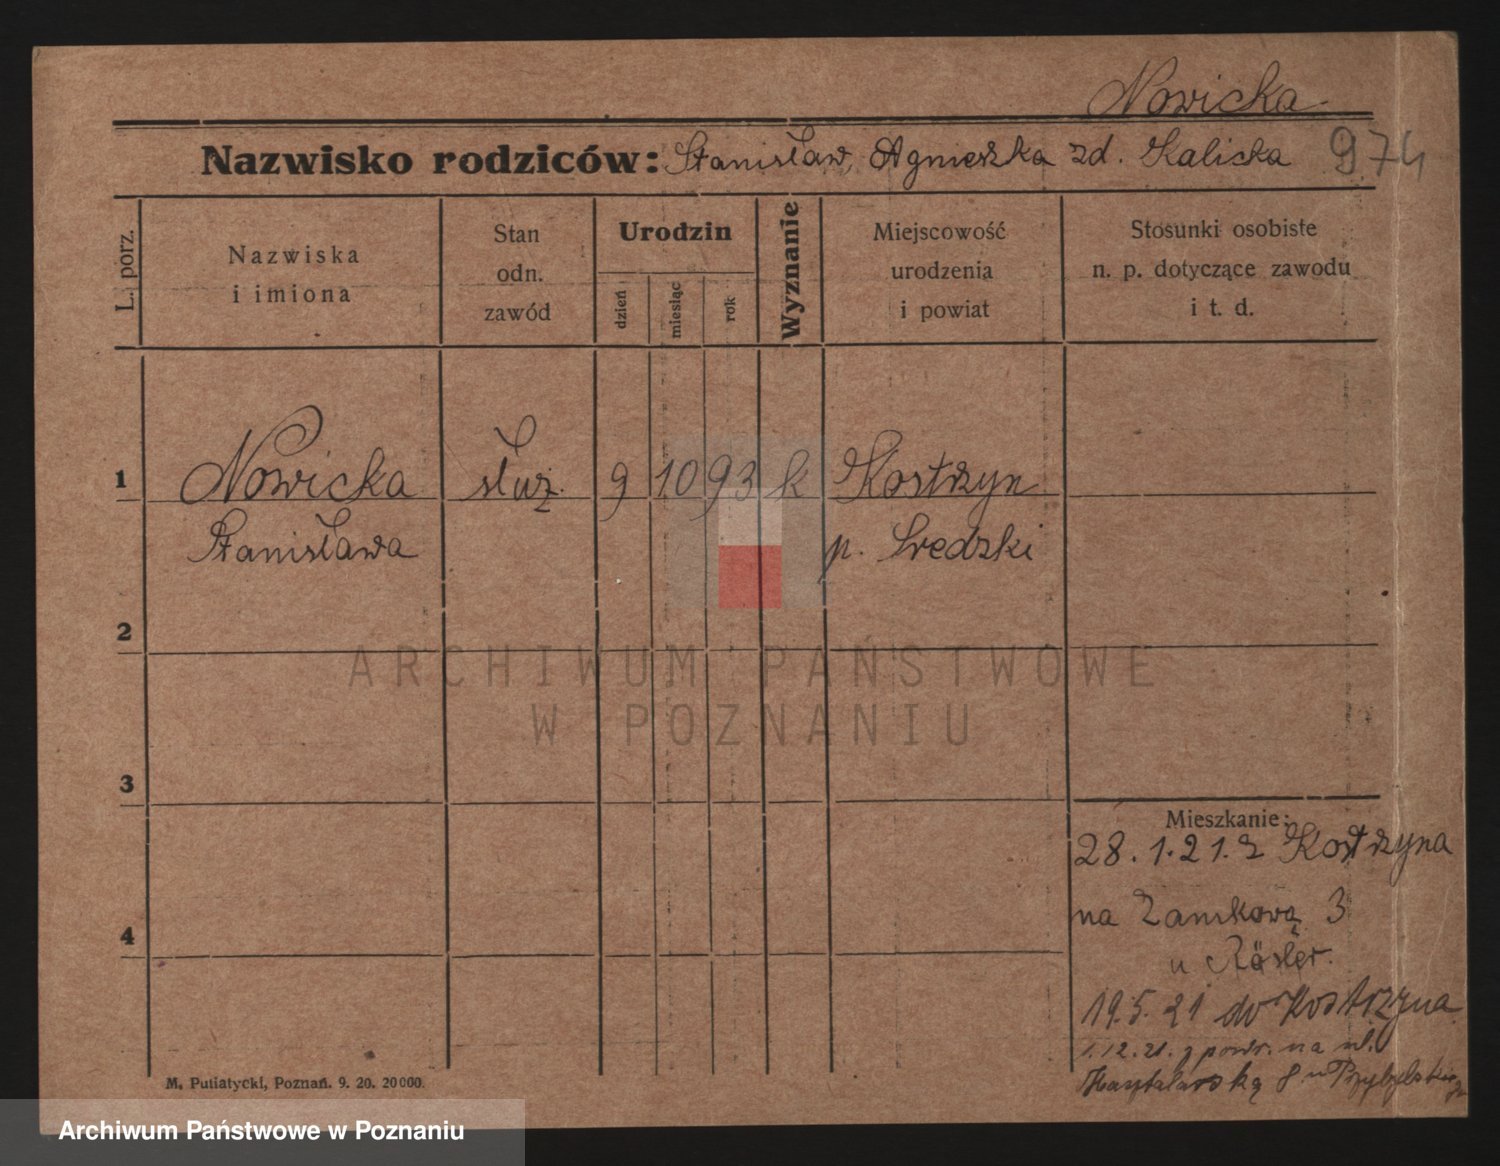 Nowicka
Nazwisko rodziców: Stanisław, Agnieszka zd. Kalicka 974
L. porz.
Nazwiska
i imiona
Stan
odn.
zawód
Urodzin
dzień
miesiąc
rok
Wyznanie
Miejscowość
urodzenia
i powiat
Stosunki osobiste
n. p. dotyczące zawodu
i t. d.
1 Nowicka służ. 9 10 93 k Kostrzyn
Stanisława p. Średzki
2
ARCHIWUM PAŃSTWOWE
W POZNANIU
3
Mieszkanie:
28.1.21. z Kostrzyna
na Zamkową 3
4
u Rösler.
19.5.21 do Kostrzyna
1.12.21. z powr. na ul.
8 u
M. Putiatycki, Poznań. 9. 20. 20000.
Archiwum Państwowe w Poznaniu